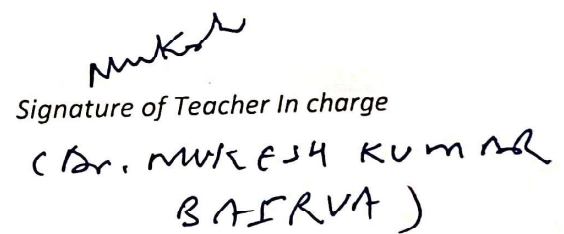 Mukesh
Signature of Teacher In charge
(Dr. MUKESH KUMAR
BAIRVA)